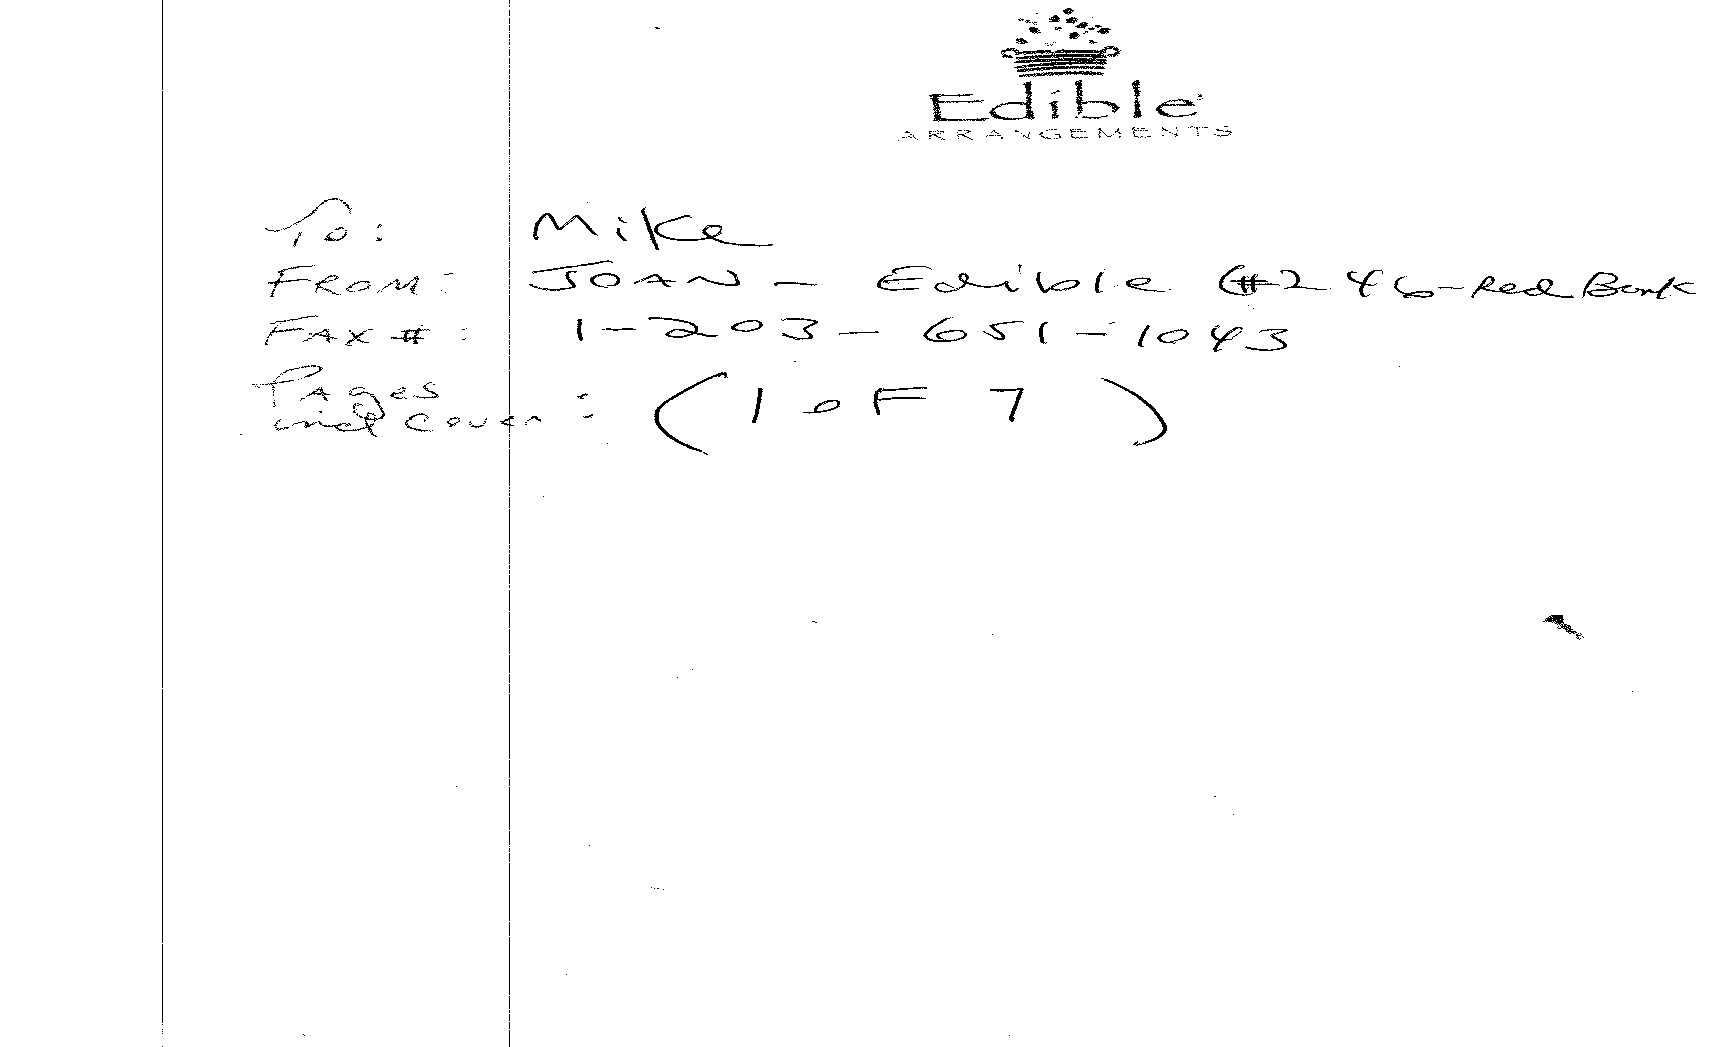 Edible
ARRANGEMENTS
To: Mike
FROM: JOAN - Edible (#246-Red Bank
FAX #: 1-203-651-1043
Pages
incl cover: (1 OF 7)